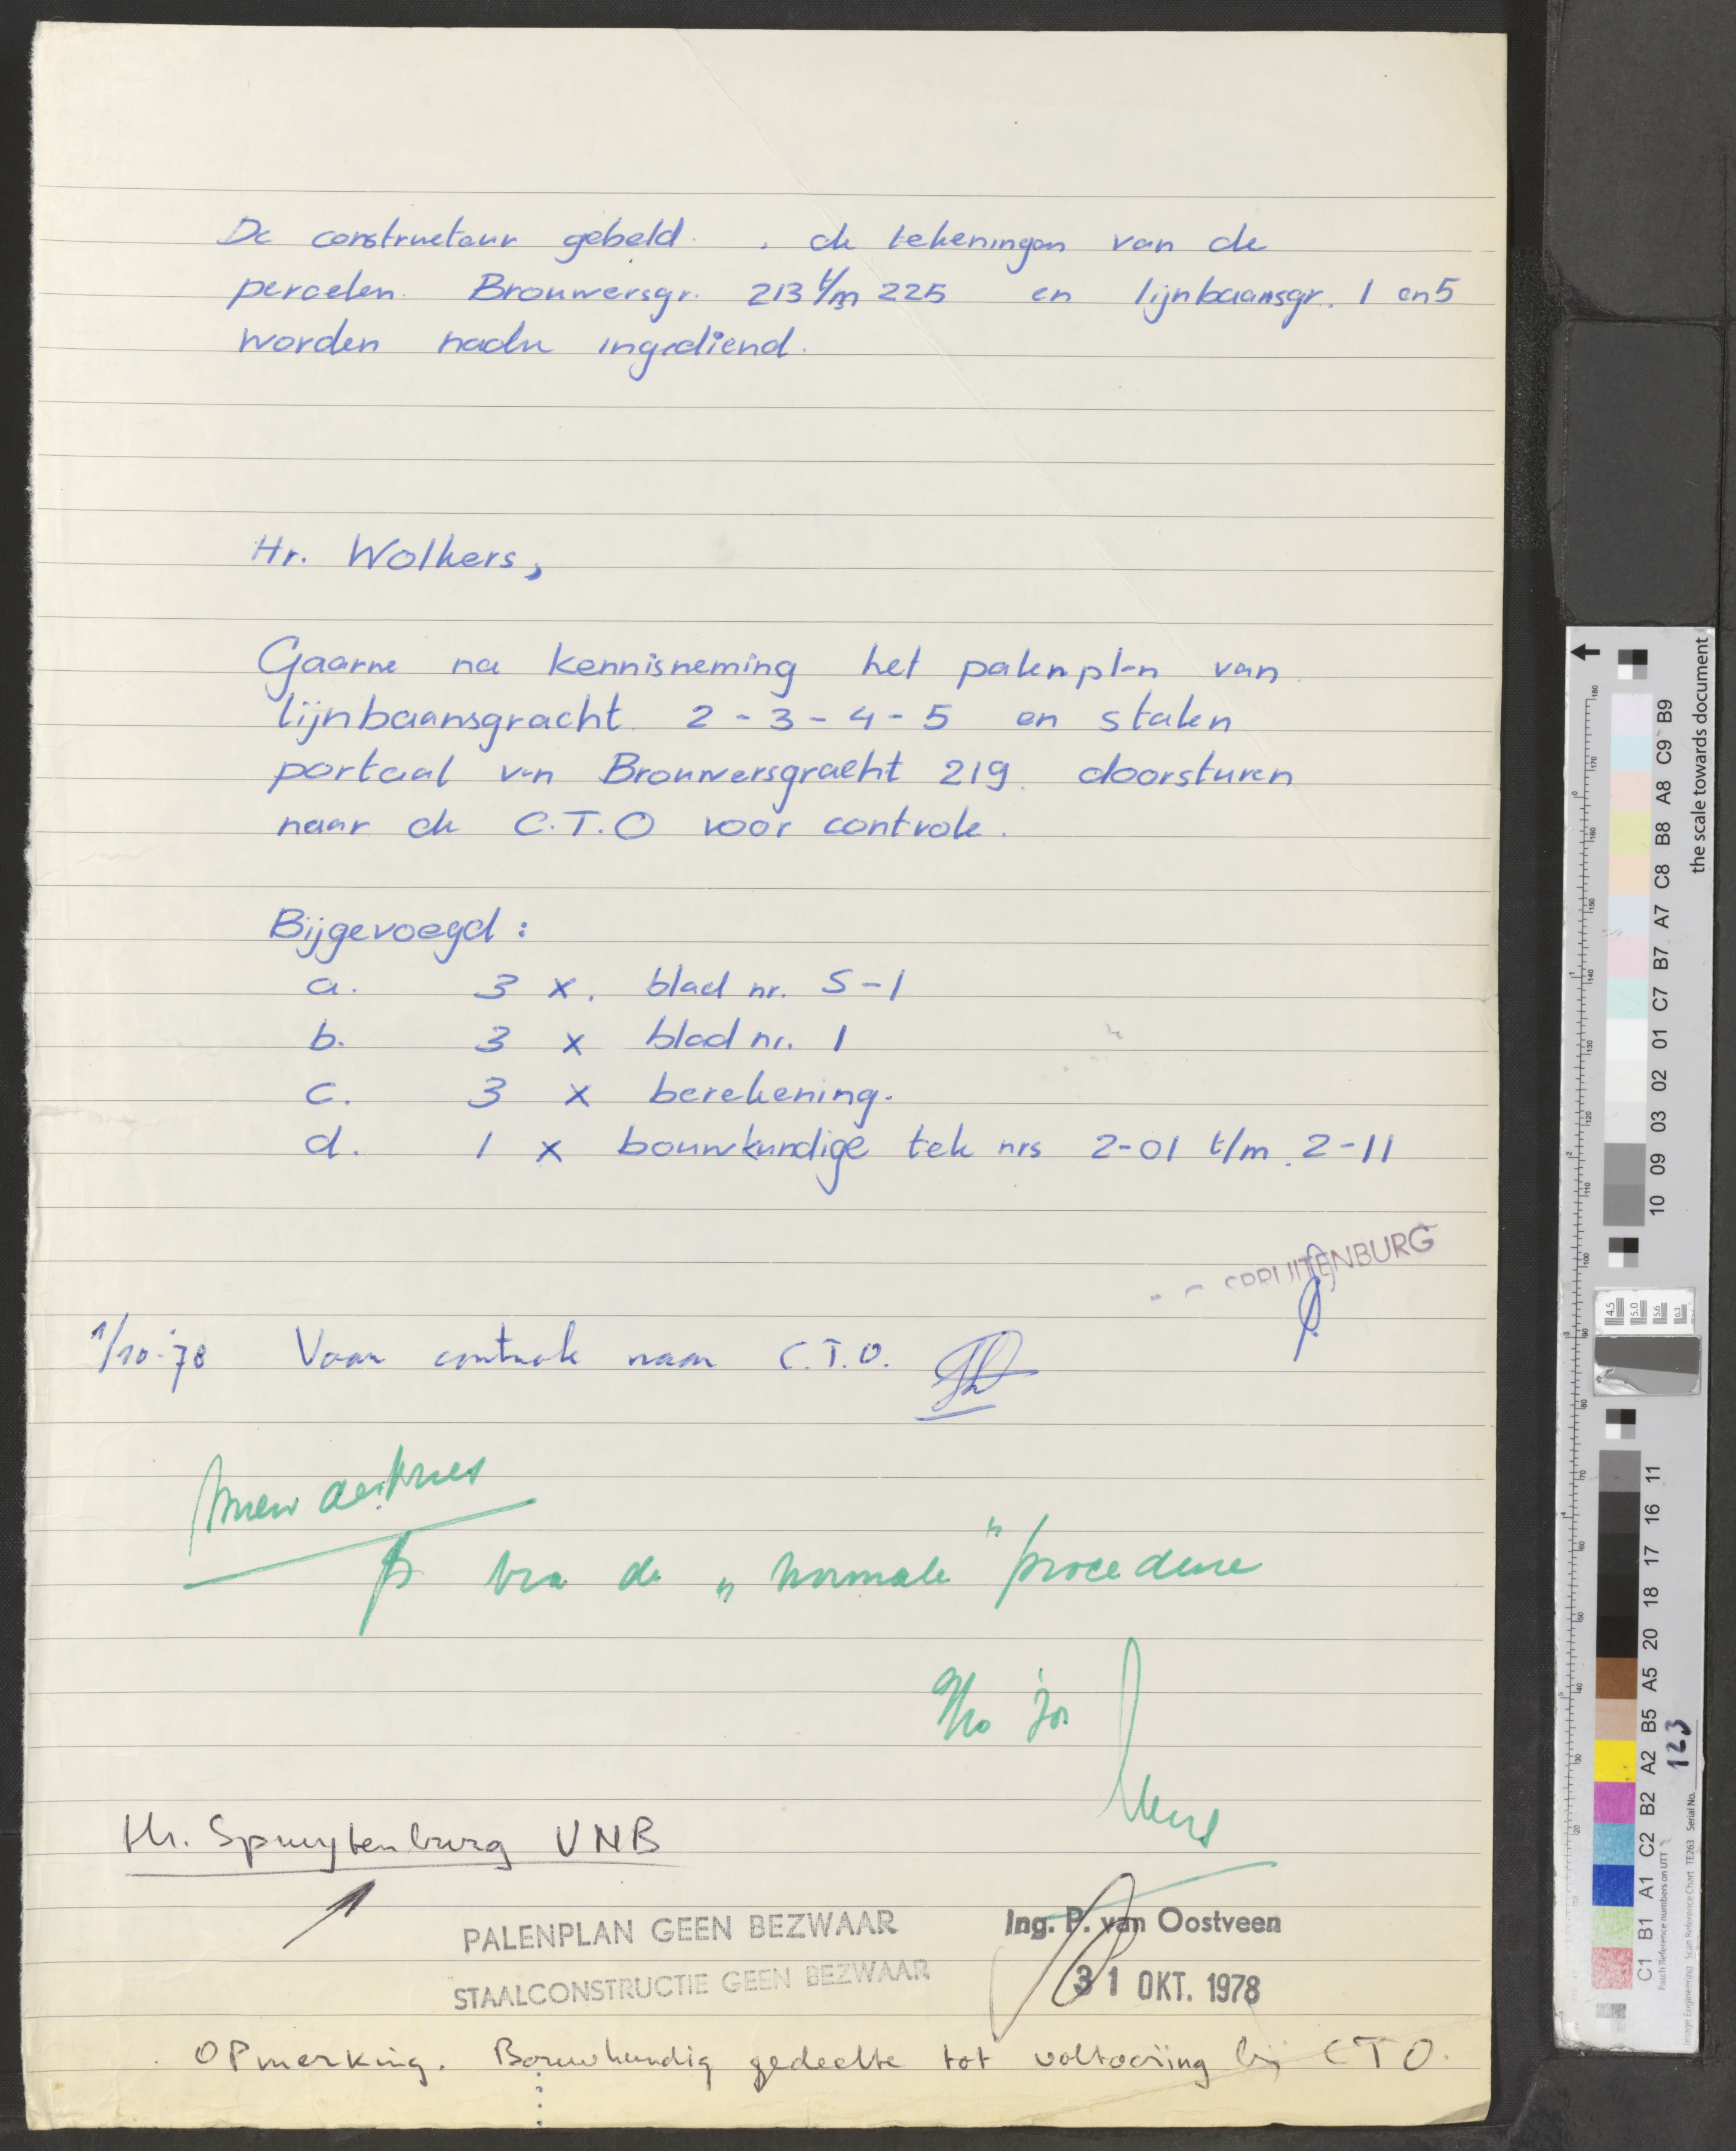 De constructeur gebeld. de tekeningen van de
percelen. Brouwersgr. 213 t/m 225 en lijnbaansgr. 1 en 5
worden nader ingediend.
Hr. Wolkers,
Gaarne na kennisneming het palenplan van
lijnbaansgracht 2-3-4-5 en stalen
portaal van Brouwersgracht 219. doorsturen
naar de C.T.O voor controle.
Bijgevoegd:
a. 3 x. blad nr. S-1
b. 3 x blad nr. 1
c. 3 x berekening.
d. 1 x bouwkundige tek nrs 2-01 t/m. 2-11
SPRUITENBURG
1/10-'78 Voor controle naar C.T.O.
via de „normale" procedure
Hr. Spruytenburg VNB
PALENPLAN GEEN BEZWAAR
Ing. P. van Oostveen
STAALCONSTRUCTIE GEEN BEZWAAR
31 OKT. 1978
OPmerking. Bouwkundig gedeelte tot voltooiing bij CTO.
the scale towards document
C1 B1 A1 C2 B2 A2 B5 A5 20 18 17 16 11
10 09 03 02 01 C7 B7 A7 C8 B8 A8 C9 B9
4.5 5.0 5.6 6.3
Patch Reference numbers on UTT
Image Engineering Scan Reference Chart TE263 Serial No. 123